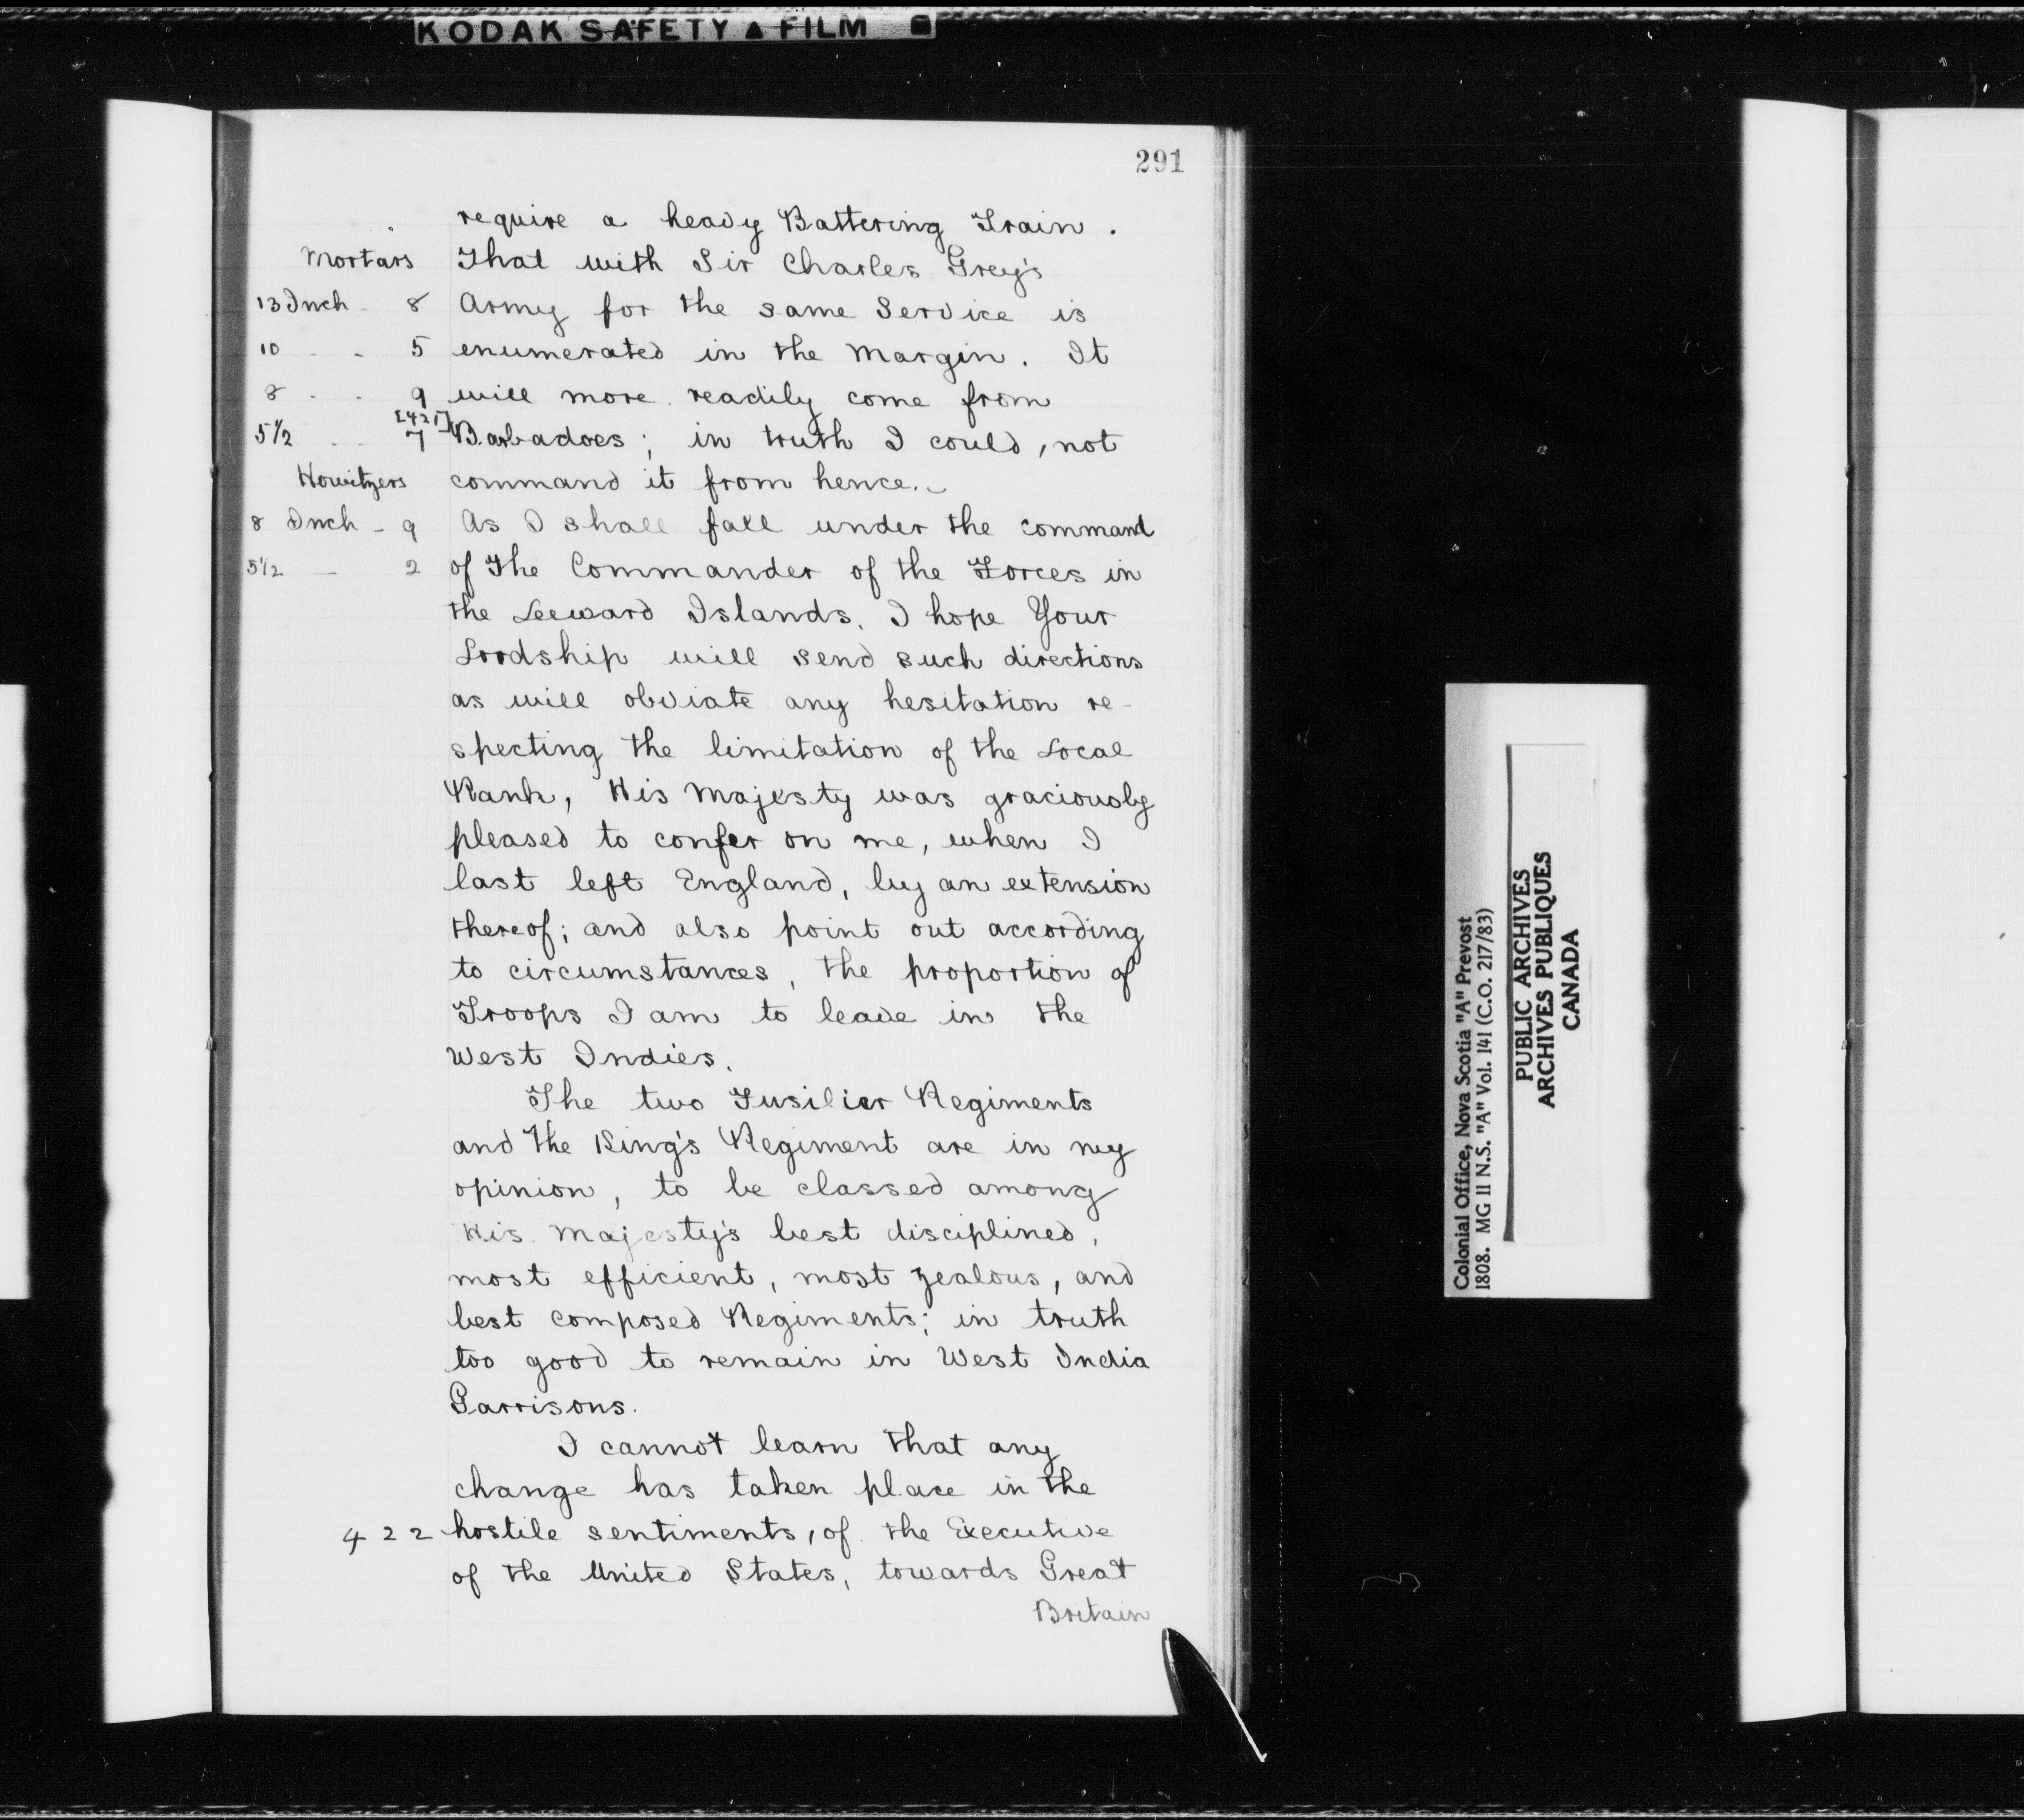 KODAK SAFETY ▲ FILM
291
require a heavy Battering Train.
Mortars That with Sir Charles Grey's
13 Inch - 8 Army for the same Service is
10 - - 5 enumerated in the Margin. It
8 - - 9 will more readily come from
[421]
5 1/2 - - 7 Barbadoes; in truth I could, not
Howitzers command it from hence.
8 Inch - 9 As I shall fall under the command
5 1/2 - 2 of The Commander of the Forces in
the Leeward Islands, I hope Your
Lordship will send such directions
as will obviate any hesitation re-
specting the limitation of the Local
Rank, His Majesty was graciously
pleased to confer on me, when I
last left England, by an extension
thereof; and also point out according
to circumstances, the proportion of
Troops I am to leave in the
West Indies.
The two Fusilier Regiments
and the King's Regiment are in my
opinion, to be classed among
His Majesty's best disciplined,
most efficient, most zealous, and
best composed Regiments; in truth
too good to remain in West India
Garrisons.
I cannot learn that any
change has taken place in the
422 hostile sentiments, of the Executive
of the United States, towards Great
Britain
Colonial Office, Nova Scotia "A" Prevost
1808. MG 11 N.S. "A" Vol. 141 (C.O. 217/83)
PUBLIC ARCHIVES
ARCHIVES PUBLIQUES
CANADA